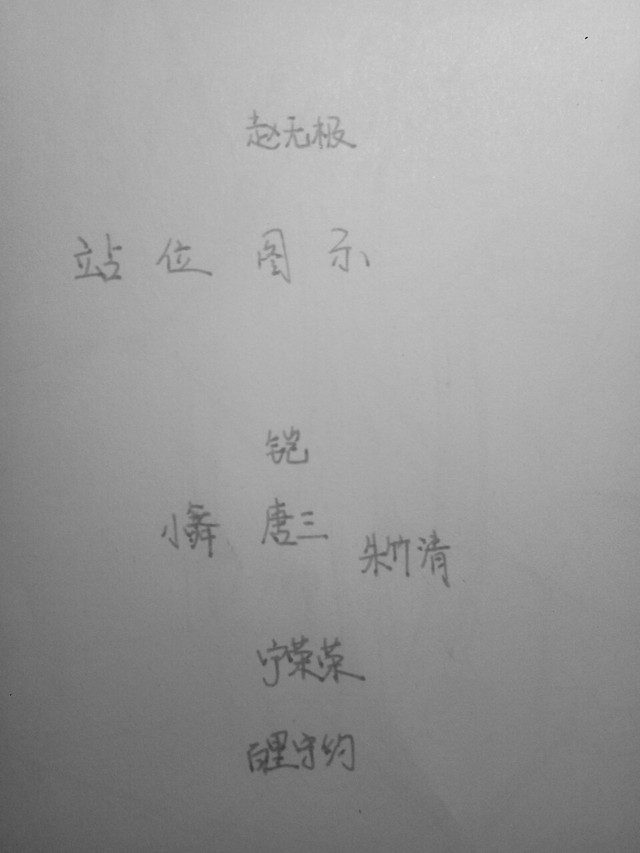 赵无极
站位图示
铠
小舞 唐三 朱竹清
宁荣荣
百里守约